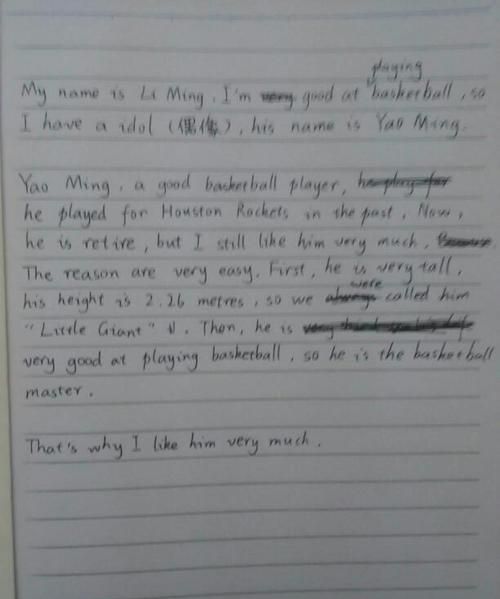 playing
My name is Li Ming. I'm very good at basketball, so
I have a idol (偶像), his name is Yao Ming.
Yao Ming, a good basketball player, he play for
he played for Houston Rockets in the past. Now,
he is retire, but I still like him very much. Because
The reason are very easy. First, he is very tall,
were
his height is 2.26 metres, so we always called him
"Little Giant". Then, he is
very good at playing basketball, so he is the basketball
master.
That's why I like him very much.